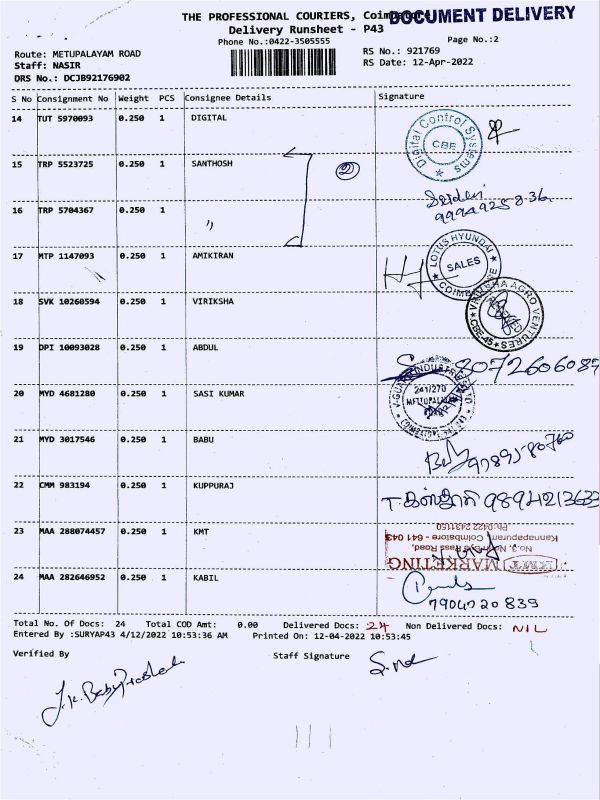 THE PROFESSIONAL COURIERS, Coimbatore
DOCUMENT DELIVERY
Delivery Runsheet - P43
Phone No.:0422-3505555
Page No.:2
Route: METUPALAYAM ROAD
RS No.: 921769
Staff: NASIR
RS Date: 12-Apr-2022
DRS No.: DCJB92176902
S No Consignment No Weight PCS Consignee Details Signature
14 TUT 5970093 0.250 1 DIGITAL
Digital Control Systems
CBE
15 TRP 5523725 0.250 1 SANTHOSH
2
16 TRP 5704367 0.250 1 "
17 MTP 1147093 0.250 1 AMIKIRAN
LOTUS HYUNDAI
SALES
18 SVK 10260594 0.250 1 VIRIKSHA
AGRO VENTURES
CBE-45
19 DPI 10093028 0.250 1 ABDUL
8072606089
20 MYD 4681280 0.250 1 SASI KUMAR
241/270
METTUPALAYAM
21 MYD 3017546 0.250 1 BABU
9789580760
22 CMM 983194 0.250 1 KUPPURAJ
9894213633
23 MAA 288074457 0.250 1 KMT
KMT MARKETING
Kannapuram, Coimbatore - 641 043
Ph:0422 2431150
24 MAA 282646952 0.250 1 KABIL
7904720839
Total No. Of Docs: 24 Total COD Amt: 0.00 Delivered Docs: 24 Non Delivered Docs: NIL
Entered By :SURYAP43 4/12/2022 10:53:36 AM Printed On: 12-04-2022 10:53:45
Verified By Staff Signature